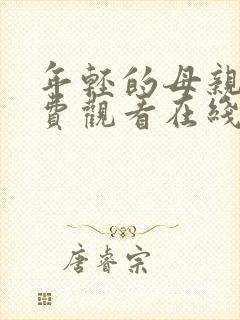 年轻的母親
費觀看在綫
唐睿宗